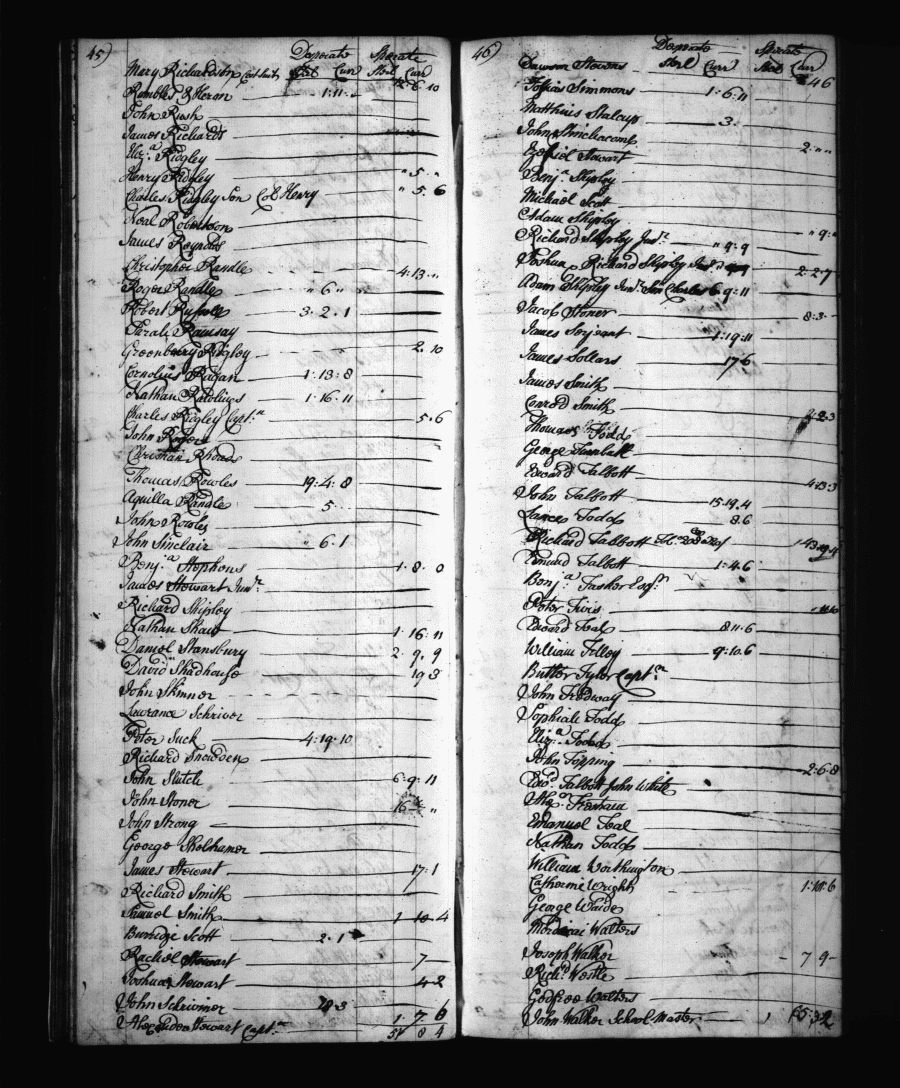 45)
Desperate Sperate
Mary Richardson Sterl Curr Sterl Curr
Rambles & Heron 1:11
John Rush
James Richards
Eliz.a Ridgley
Henry Ridgley " 5 "
Charles Ridgley Son Col Henry " 5. 6
Neal Robertson
James Reynolds
Christopher Randle 4:13 "
Roger Randle " 6 "
Robert Russele 3. 2. 1
Sarah Ramsay
Greenbury Ridgley 2. 10
Cornelius Ragan 1:13:8
Nathan Rawlings 1:16.11
Charles Ridgley Capt.n 5.6
John Rogers
Christian Rhoads
Thomas Rowles 19:4:8
Aquilla Randle 5
John Rowles
John Sinclair " 6.1
Benj.a Stephens 1. 8. 0
James Stewart Jun.r
Richard Shipley
Nathan Shaw 1 16.11
Daniel Stansbury 2. 9. 9
David Shadhouse 19 3
John Skinner
Lawrance Schriver
Peter Suck 4:19.10
Richard Snowden
John Slutch 6.9.11
John Stoner 16
John Strong
George Sholehamer
James Stewart 17.1
Richard Smith
Samuel Smith 1 10.4
Burridge Scott 2.1
Rachel Stewart 7
Joshua Stewart 4 2
John Scrivinor 3
Alexander Stewart Capt.n 1. 7 6
8 4
46)
Desperate Sperate
Dawson Stevens Sterl Curr Sterl Curr
Tobias Simmons 1:6:11
Matthias Stalcup 3.
John Stinchacomb
Ezekiel Stewart 2 " "
Benj.a Shipley
Michael Scott
Adam Shipley
Richard Shipley Jun.r " 9:9
Joshua Richard Shipley 2:2 7
Adam Shipley Jun.r Son Charles 6.9:11
Jacob Stoner 8:3
James Serjeant 1:19:11
James Sollars 17 6
James Smith
Conrod Smith
Thomas Todd
George Turnball
Edward Talbott
John Talbott 15.19.4
Lance Todd 8.6
Richard Talbott
Edward Talbott 1:4.6
Benj.a Tasker Esq.r
Peter Tivis
Edward Teal 8.11.6
William Tilley 9:10.6
Butter Tyler Capt.n
John Tredway
Sophiah Todd
Eliz.a Todd
John Topping 2.6 8
Edw.d Talbott John White
Tho.s Treham
Emanuel Teal
Nathan Todd
William Worthington
Catherine Wright
George Waide
Mordicai Walters
Joseph Walker 7 9
Rich.d Westle
Godfree Walters
John Walker School Master